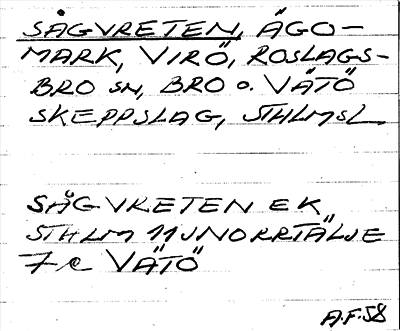 SÅGVRETEN, ÄGO-
MARK, VIRÖ, ROSLAGS-
BRO SN, BRO O. VÄTÖ
SKEPPSLAG, STHLMSL.
SÅGVRETEN EK,
STHLM 11 JNORRTÄLJE
7 e VÄTÖ
A.F.58